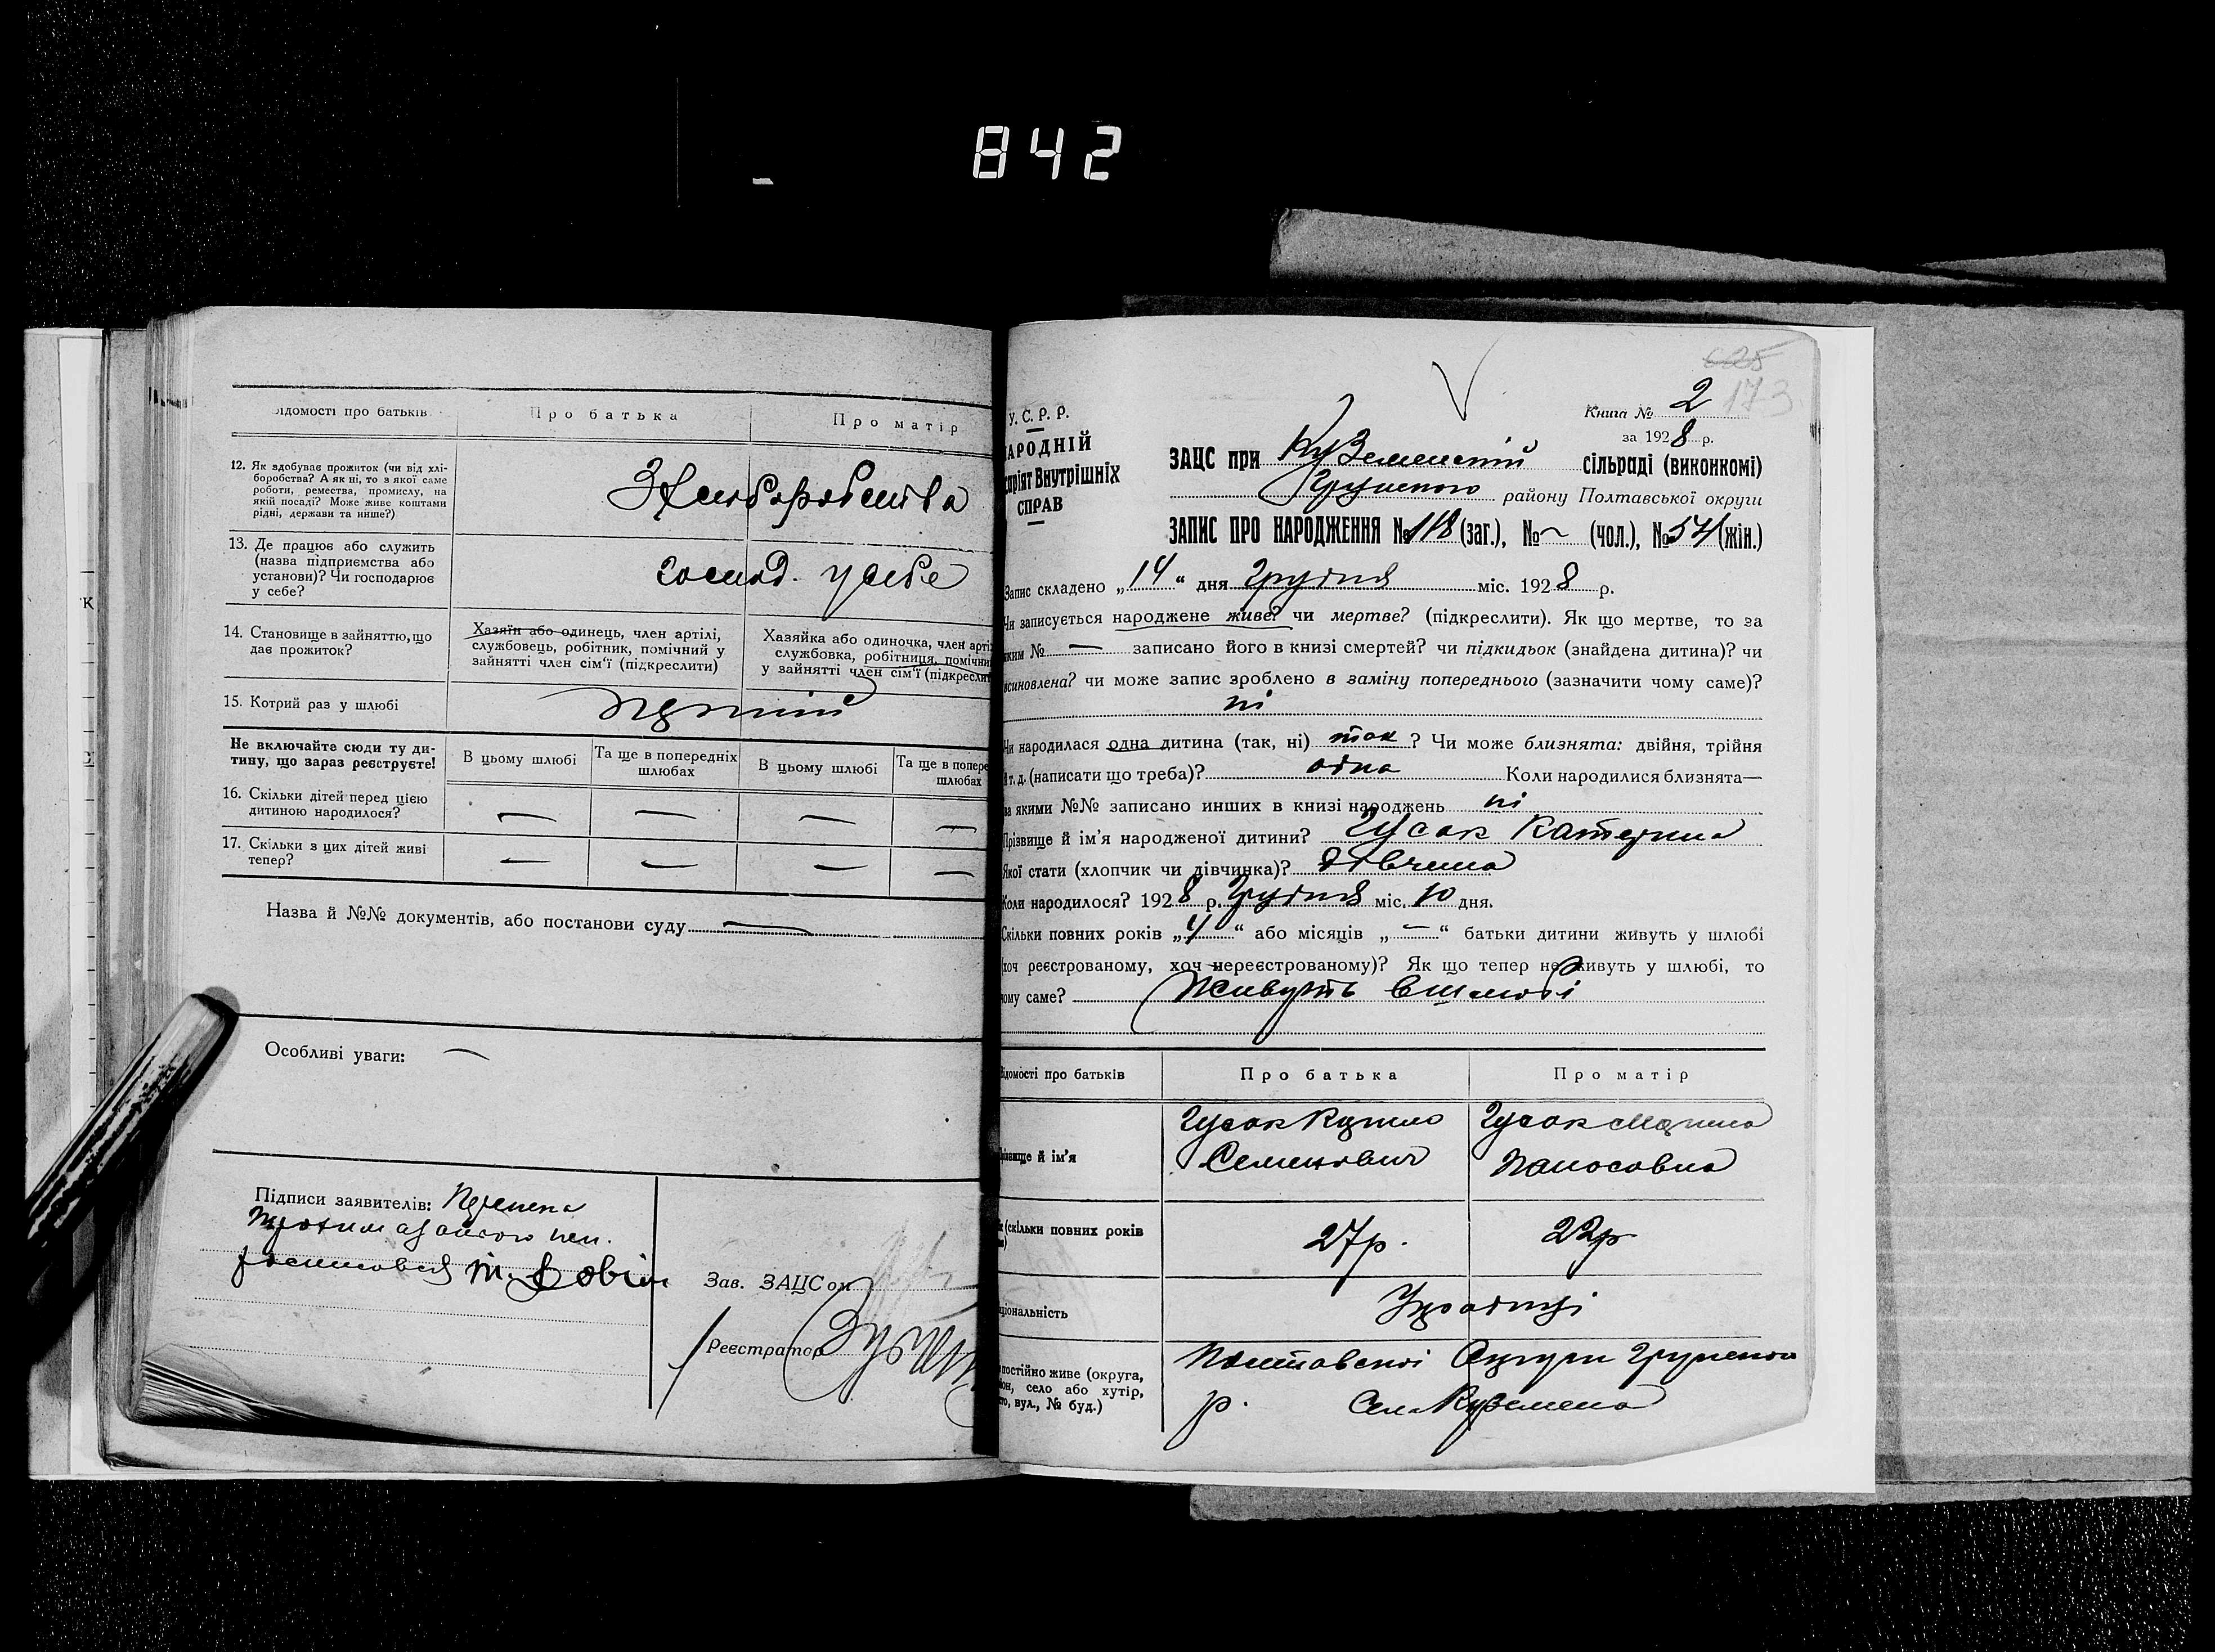 842
Відомості про батьків
Про батька
Про матір
12. Як здобуває прожиток (чи від хлі-
боробства? А як ні, то з якої саме
роботи, ремества, промислу, на
якій посаді? Може живе коштами
рідні, держави та инше?)
З Хліборобства
13. Де працює або служить
(назва підприємства або
установи)? Чи господарює
у себе?
господ. у себе
14. Становище в зайняттю, що
дає прожиток?
Хазяїн або одинець, член артілі,
службовець, робітник, помічний у
зайнятті член сім'ї (підкреслити)
Хазяйка або одиночка, член арті
службовка, робітниця, помічни
у зайнятті член сім'ї (підкресли
15. Котрий раз у шлюбі
Не включайте сюди ту ди-
тину, що зараз реєструєте!
В цьому шлюбі
Та ще в попередніх
шлюбах
В цьому шлюбі
Та ще в попере
шлюбах
16. Скільки дітей перед цією
дитиною народилося?
— — — —
17. Скільки з цих дітей живі
тепер?
— — — —
Назва й №№ документів, або постанови суду —
Особливі уваги: —
Підписи заявителів:
Зав. ЗАЦСом
Реєстратор
625
173
У.С.Р.Р.
АРОДНІЙ
ріят Внутрішніх
СПРАВ
Книга № 2
за 1928 р.
ЗАЦС при Куземенській сільраді (виконкомі)
Грунського району Полтавської округи
ЗАПИС ПРО НАРОДЖЕННЯ № 118 (заг.), № ~ (чол.), № 54 (жін.)
Запис складено „14“ дня Грудня міс. 1928 р.
Чи записується народжене живе? чи мертве? (підкреслити). Як що мертве, то за
яким № — записано його в книзі смертей? чи підкидьок (знайдена дитина)? чи
всиновлена? чи може запис зроблено в заміну попереднього (зазначити чому саме)?
ні
Чи народилася одна дитина (так, ні) так? Чи може близнята: двійня, трійня
і т. д. (написати що треба)? одна Коли народилися близнята—
за якими №№ записано инших в книзі народжень ні
Прізвище й ім'я народженої дитини? Гусак Катерина
Якої стати (хлопчик чи дівчинка)? дівчина
Коли народилося? 1928 р. Грудня міс. 10 дня.
Скільки повних років „4“ або місяців „—“ батьки дитини живуть у шлюбі
(хоч реєстрованому, хоч нереєстрованому)? Як що тепер не живуть у шлюбі, то
чому саме? Живуть в шлюбі
Відомості про батьків
Про батька
Про матір
Прізвище й ім'я
Гусак Кирило
Семенович
Гусак Марина
Панасовна
(скільки повних років
27р.
22р
ціональність
Українці
постійно живе (округа,
йон, село або хутір,
то, вул., № буд.)
Полтавської Округи Грунського
р. Село Куземена